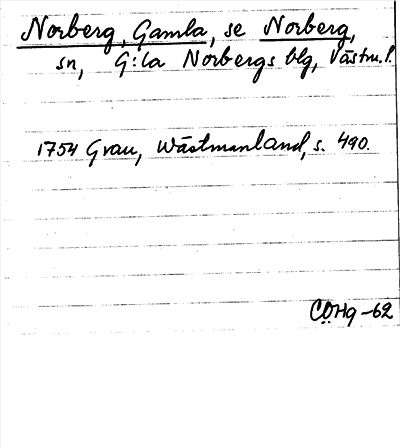 Norberg, Gamla, se Norberg,
sn, G:la Norbergs blg, Västm. l.
1754 Grau, Wästmanland, s. 490.
CÖHg -62